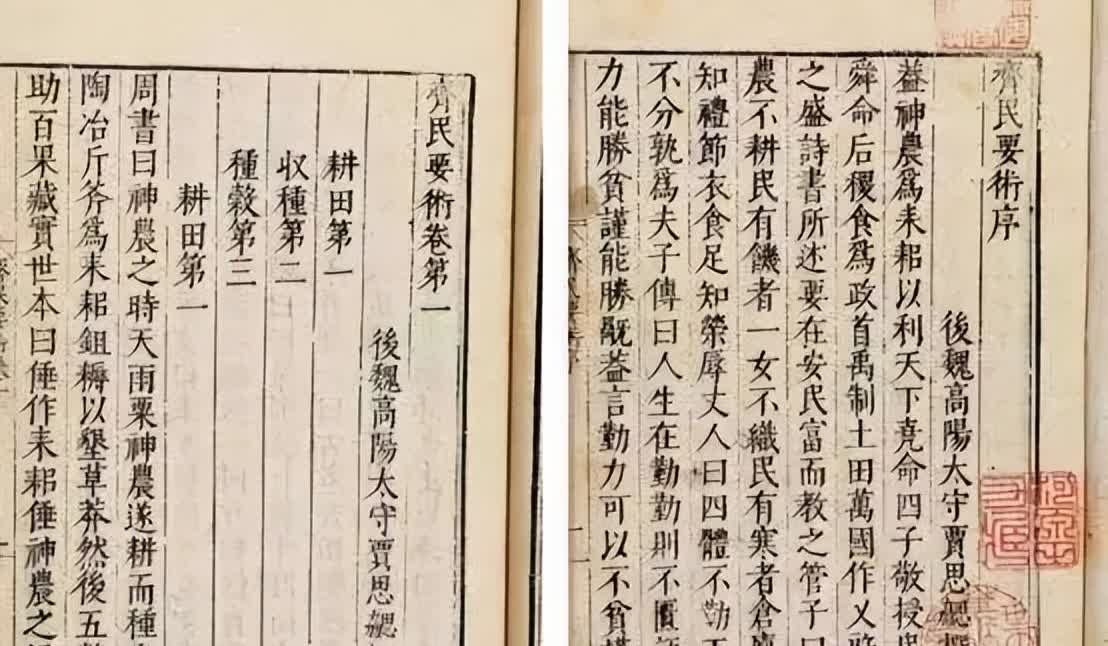 齊民要術序
後魏高陽太守賈思勰
葢神農爲耒耜以利天下堯命四子敬授
舜命后稷食爲政首禹制土田萬國作乂
之盛詩書所述要在安民富而教之管子曰
農不耕民有饑者一女不織民有寒者倉廩
知禮節衣食足知榮辱丈人曰四體不勤
不分孰爲夫子傳曰人生在勤勤則不匱
力能勝貧謹能勝旤葢言勤力可以不貧
齊民要術卷第一
後魏高陽太守賈思勰
耕田第一
収種第二
種穀第三
耕田第一
周書曰神農之時天雨粟神農遂耕而種
陶冶斤斧爲耒耜鉏耨以墾草莽然後五
助百果藏實世本曰倕作耒耜倕神農之